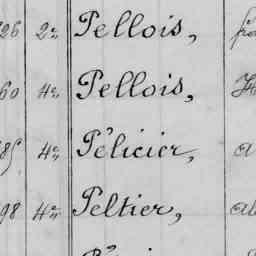 26 2e Pellois,
60 4e Pellois,
85 4e Pélicier,
98 4e Peltier,